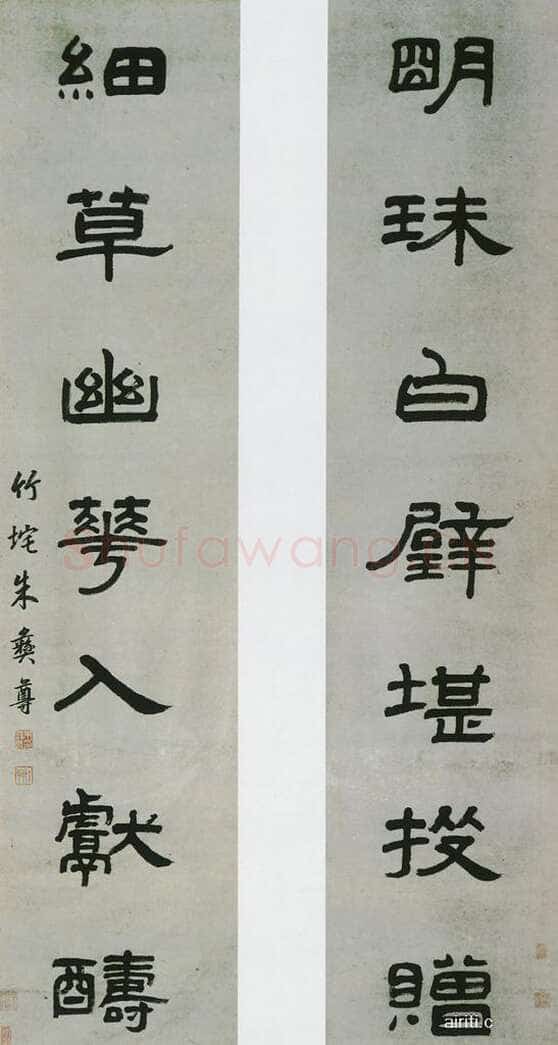 朙珠白璧堪投贈
細草幽華入獻醻
竹垞朱彝尊
Shufawang
airiti.c